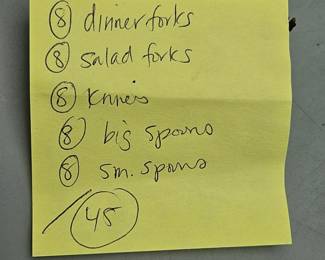 8 dinner forks
8 salad forks
8 Knives
8 big spoons
8 sm. spoons
/ 45